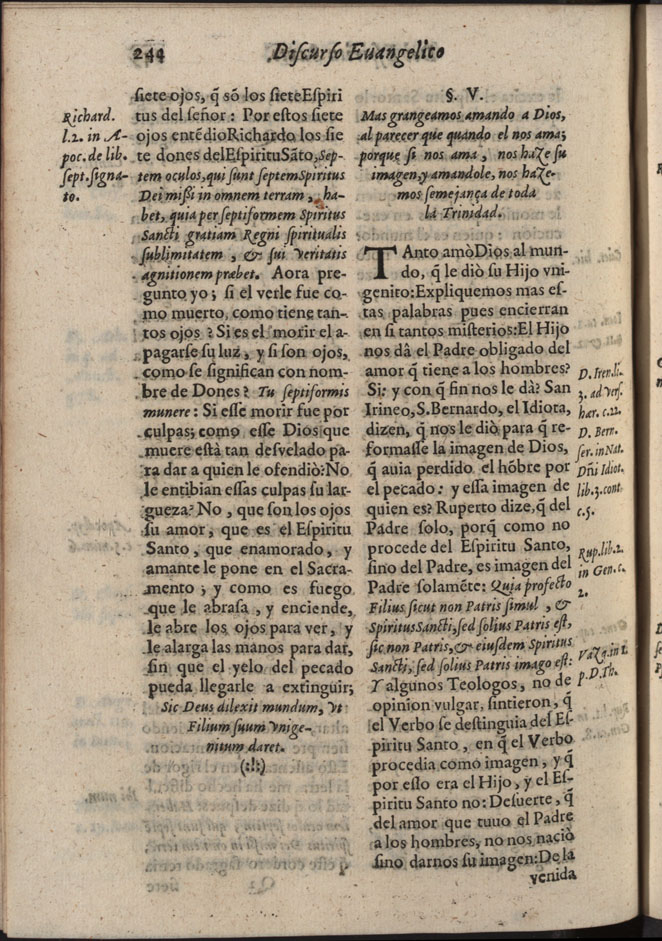 244
Discurso Euangelico
siete ojos, q̃ sõ los sieteEspiri
tus del señor: Por estos siete
ojos entẽdioRichardo los sie
te dones delEspirituSãto, Sep-
tem oculos, qui sunt septemSpiritus
Dei missi in omnem terram, ha-
bet, quia per septiformem Spiritus
Sancti gratiam Regni spiritualis
sublimitatem, & sui veritatis
agnitionem præbet. Aora pre-
gunto yo; si el verle fue co-
mo muerto, como tiene tan-
tos ojos? Si es el morir el a-
pagarse su luz, y si son ojos,
como se significan con nom-
bre de Dones? Tu septiformis
munere: Si esse morir fue por
culpas; como esse Dios que
muere està tan desvelado pa-
ra dar a quien le ofendiò: No
le entibian essas culpas su lar-
gueza? No, que son los ojos
su amor, que es el Espiritu
Santo, que enamorado, y
amante le pone en el Sacra-
mento; y como es fuego
que le abrasa, y enciende,
le abre los ojos para ver, y
le alarga las manos para dar,
sin que el yelo del pecado
pueda llegarle a extinguir;
Sic Deus dilexit mundum, vt
Filium suum vnige-
nitum daret.
(:!:)
Richard.
l.2. in A-
poc. de lib.
sept. signa-
to.
§. V.
Mas grangeamos amando a Dios,
al parecer que quando el nos ama;
porque si nos ama, nos haze su
imagen, y amandole, nos haze-
mos semejança de toda
la Trinidad.
TAnto amò Dios al mun-
do, q̃ le diò su Hijo vni
genito: Expliquemos mas es-
tas palabras pues encierran
en si tantos misterios: El Hijo
nos dà el Padre obligado del
amor q̃ tiene a los hombres?
Si: y con q̃ fin nos le dà? San
Irineo, S. Bernardo, el Idiota,
dizen, q̃ nos le diò para q̃ re-
formasse la imagen de Dios,
q̃ auia perdido el hõbre por
el pecado: y essa imagen de
quien es? Ruperto dize, q̃ del
Padre solo, porq̃ como no
procede del Espiritu Santo,
sino del Padre, es imagen del
Padre solamẽte: Quia profecto
Filius sicut non Patris simul, &
SpiritusSancti, sed solius Patris est,
sic non Patris, & eiusdem Spiritus
Sancti, sed solius Patris imago est:
Y algunos Teologos, no de
opinion vulgar, sintieron, q̃
el Verbo se destinguia del Es-
piritu Santo, en q̃ el Verbo
procedia como imagen, y q̃
por esto era el Hijo, y el Es-
piritu Santo no: Desuerte, q̃
del amor que tuuo el Padre
a los hombres, no nos naciò
sino darnos su imagen: De la
venida
D. Iren. li.
3. ad vers.
hær. c. 22.
D. Bern.
ser. in Nat.
Dñi Idiot.
lib. 3. cont.
c. 5.
Rup. lib. 2.
in Gen. c.
2.
Vazq. in 1.
p. D. Th.